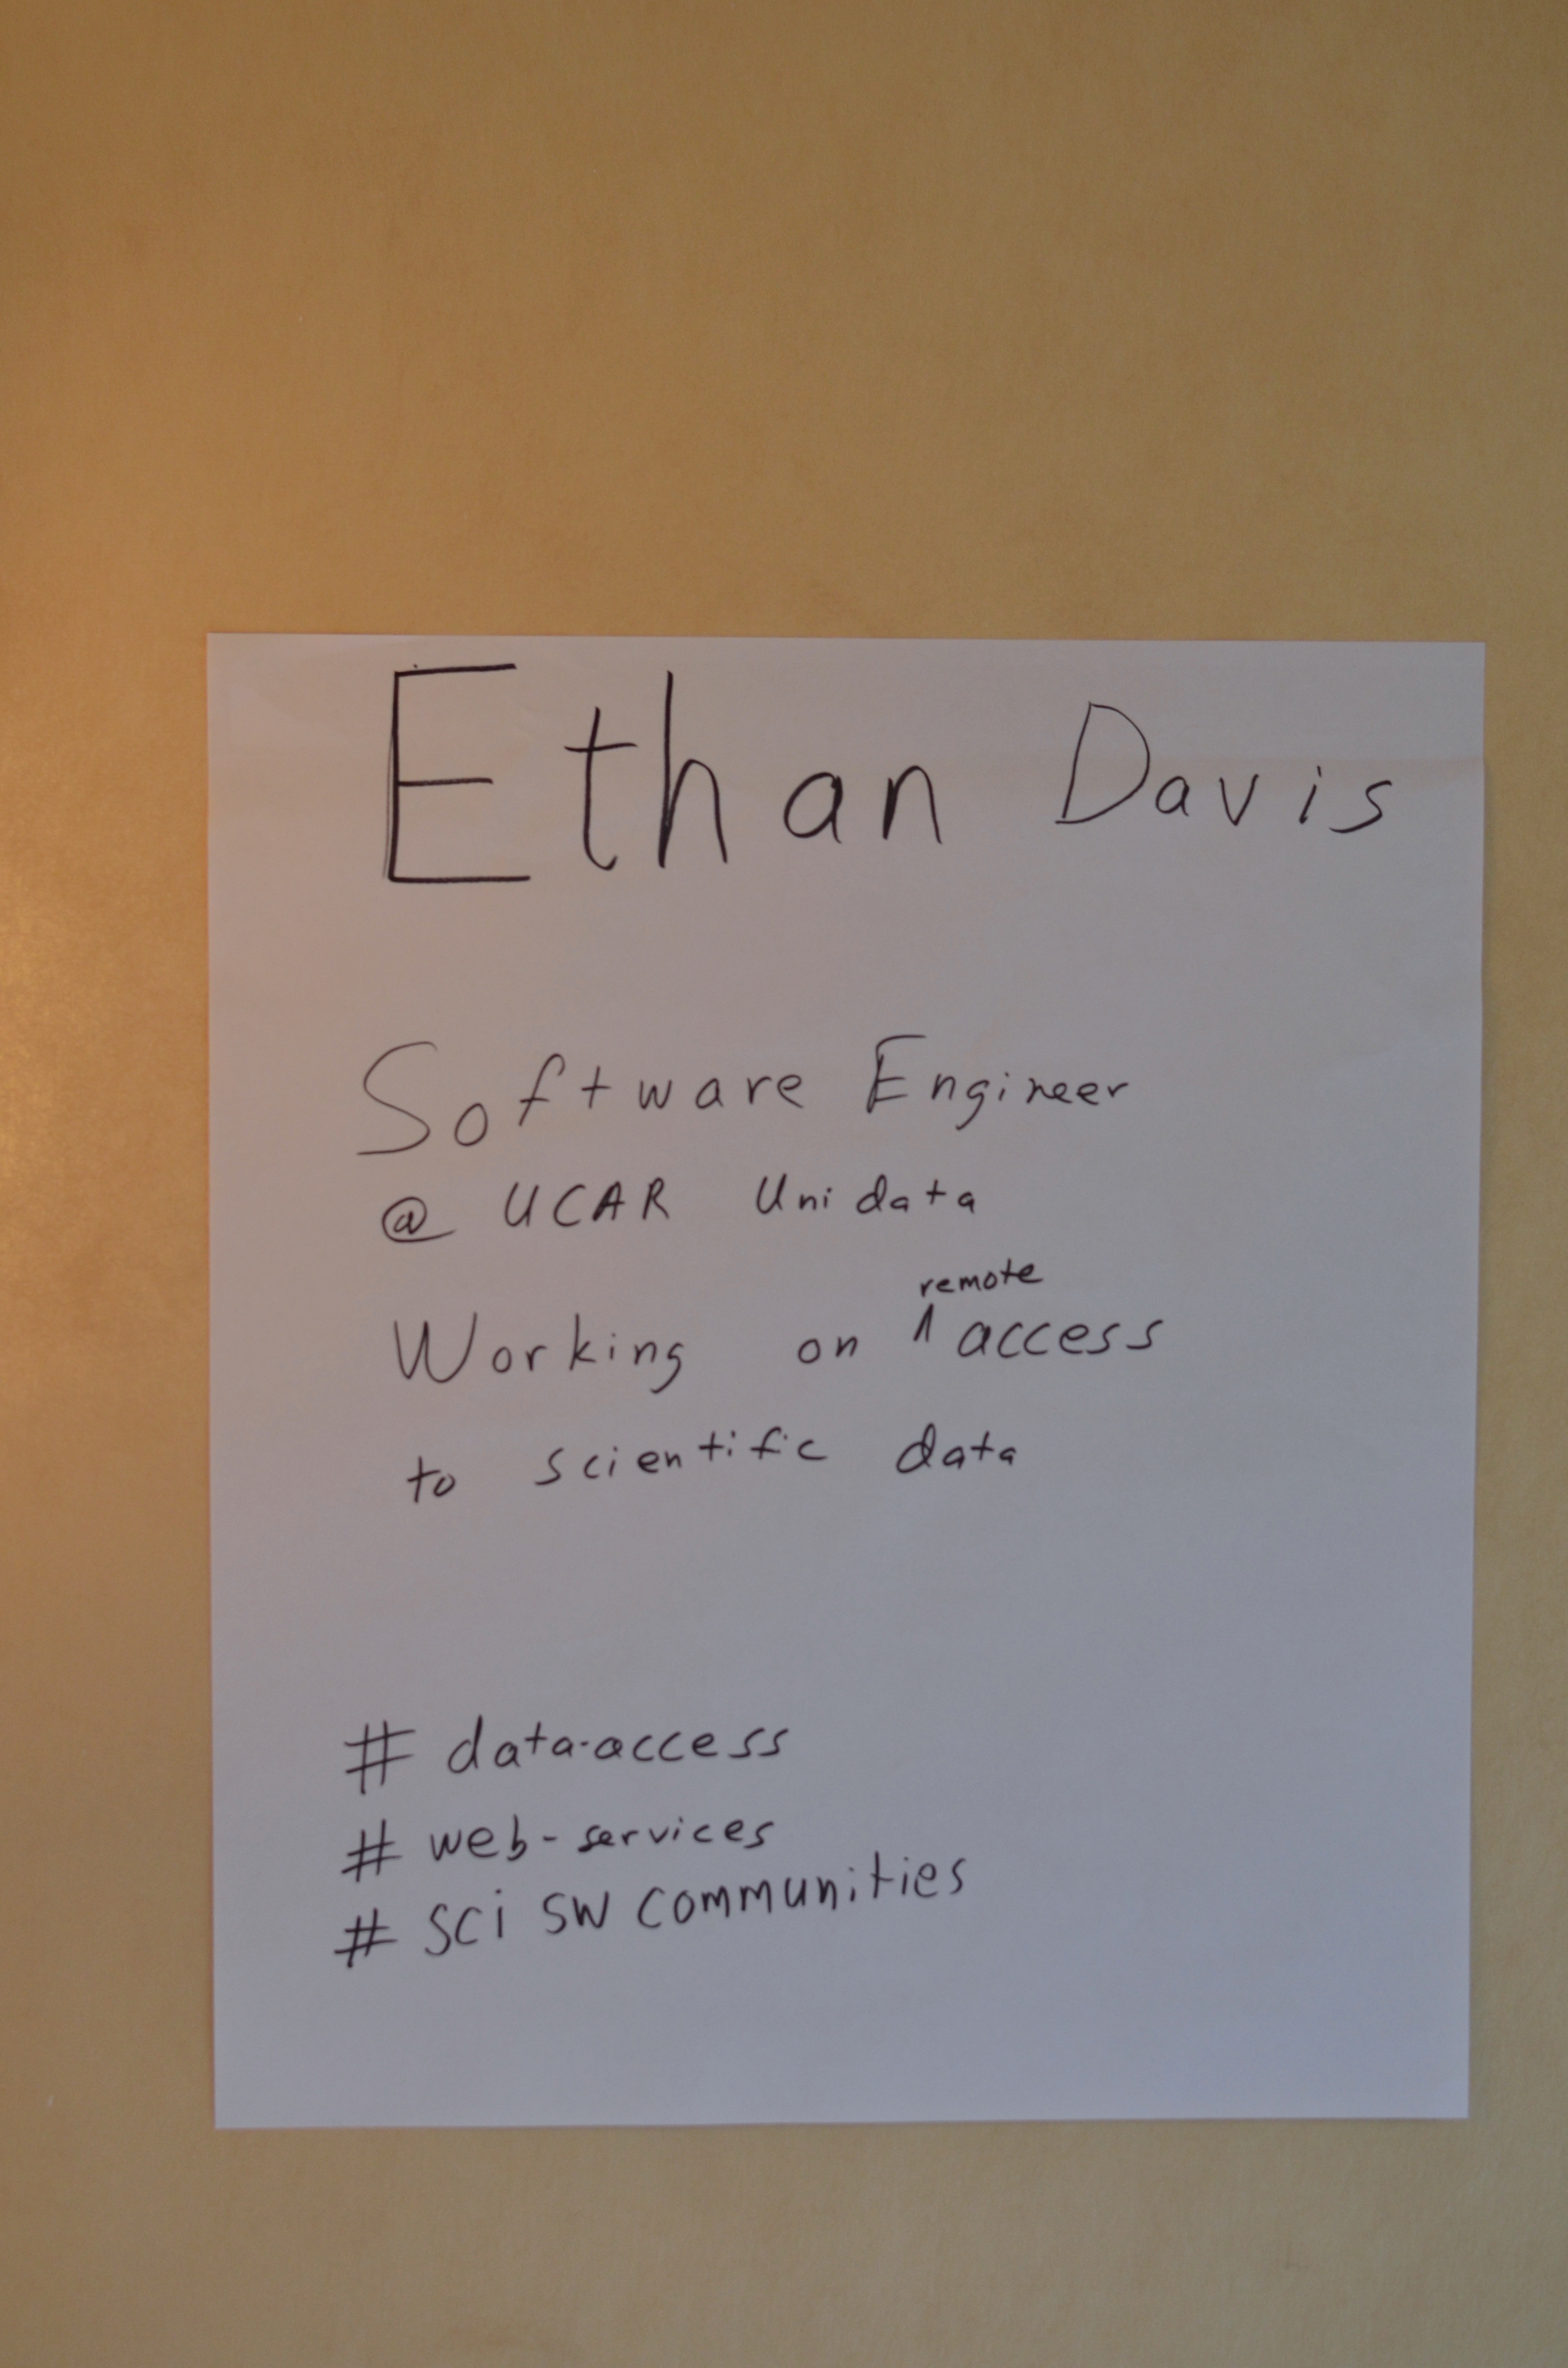 Ethan Davis
Software Engineer
@ UCAR Unidata
Working on remote access
to scientific data
# data-access
# web-services
# sci sw communities